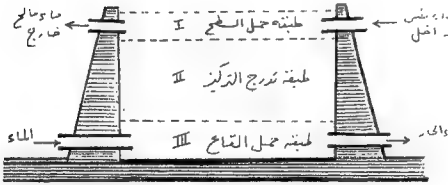 ماء مالح
خارج
طبقة حمل السطح I
داخل
طبقة تدرج التركيز II
الماء
طبقة حمل القاع III